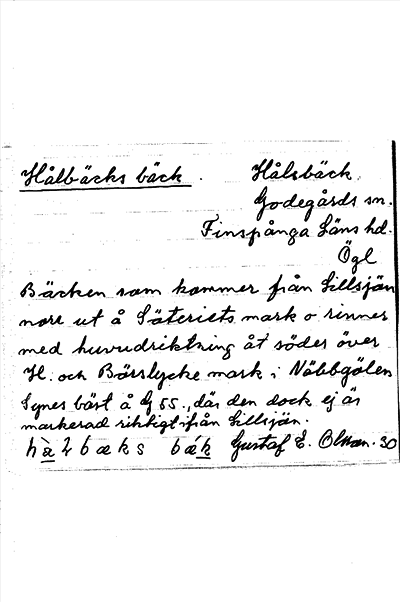 Hålbäcks bäck. Hålsbäck.
Godegårds sn.
Finspånga Läns hd.
Ögl
Bäcken som kommer från Lillsjön
norr ut å Säteriets mark o rinner
med huvudriktning åt söder över
H. och Bärslycke mark i Näbbgölen
Synes bäst å G 55., där den dock ej är
markerad riktigt ifrån Lillsjön.
Gustaf E. Olsson. 30